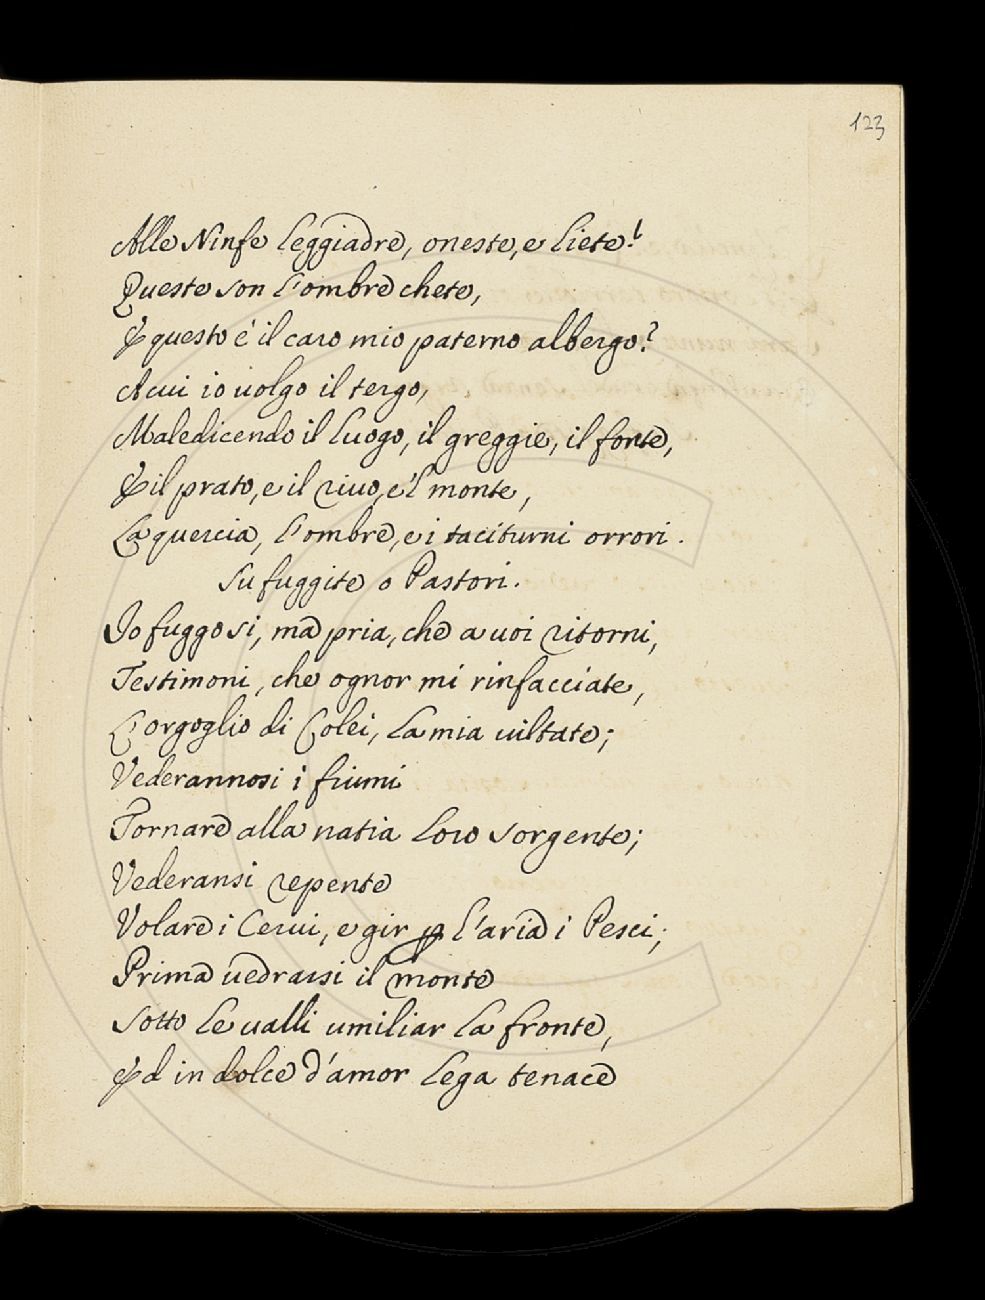 123
Alle Ninfe leggiadre, oneste, e liete!
Queste son l'ombre chete,
E questo é il caro mio paterno albergo?
A cui io uolgo il tergo,
Maledicendo il luogo, il greggie, il fonte,
E il prato, e il riuo, e'l monte,
La quercia, l'ombre, e i taciturni orrori.
Su fuggite o Pastori.
Io fuggo si, ma pria, che a uoi ritorni,
Testimoni, che ognor mi rinfacciate,
L'orgoglio di Colei, la mia uiltate;
Vederannosi i fiumi
Tornare alla natia loro sorgente;
Vederansi repente
Volare i Cerui, e gir ꝑ l'aria i Pesci;
Prima uedrassi il monte
Sotto le ualli umiliar la fronte,
Ed in dolce d'amor lega tenace